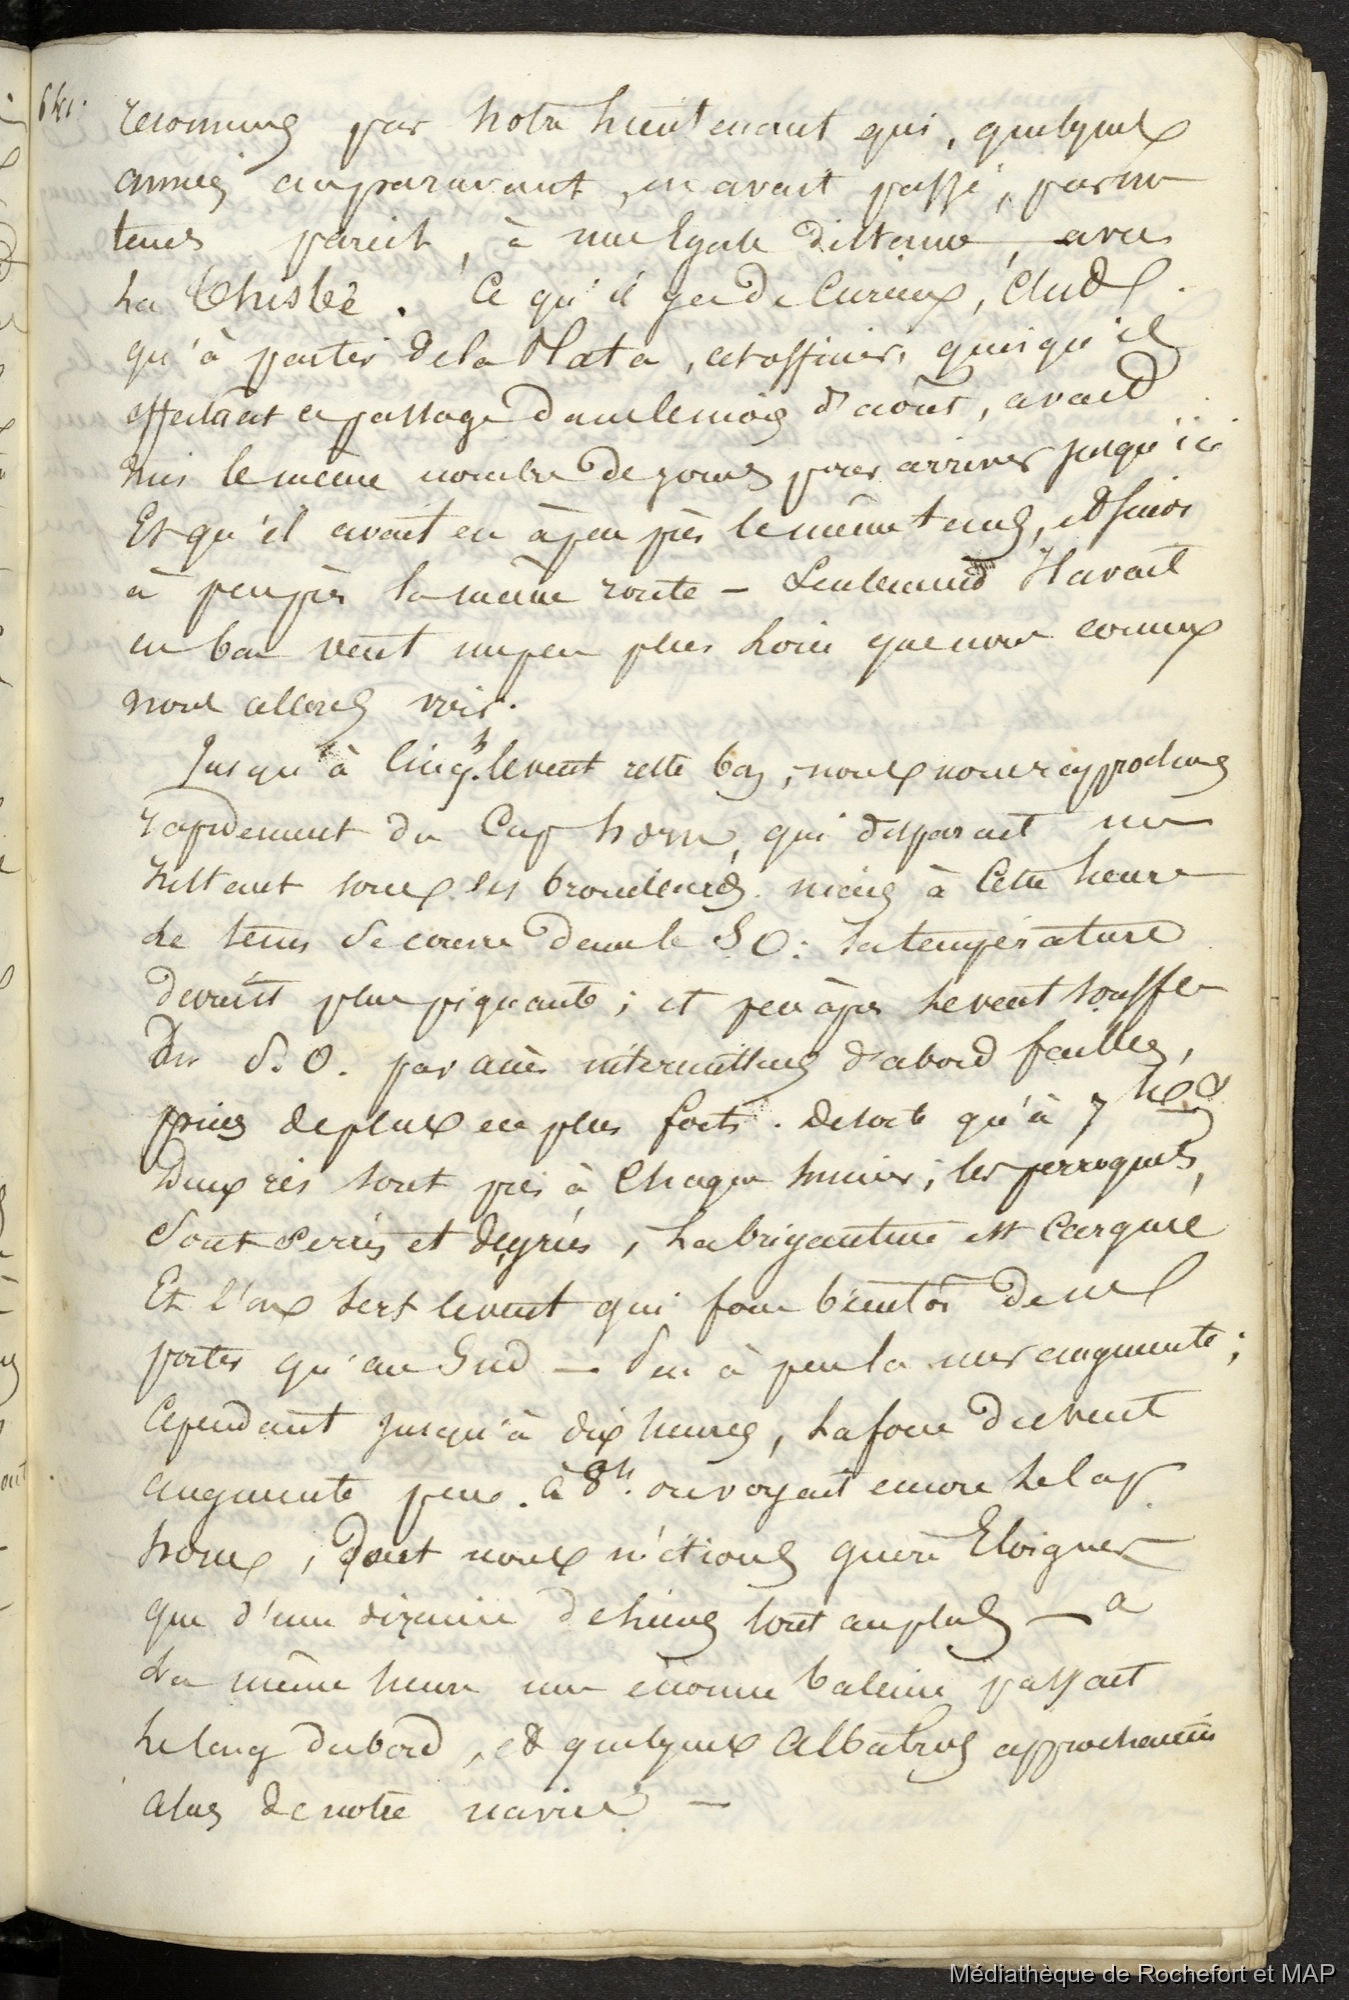 641.
reconnus par notre lieutenant qui, quelques
années auparavant, en avait passé, par un
tems pareil, à une Egale distance, avec
La Thisbé. Ce qu'il y a de Curieux, C'est
qu'à partir de la Plata, cet officier, quoiqu'il
effectuat ce passage dans le mois d'août, avait
mis le même nombre de jours pour arriver jusqu'ici
Et qu'il avait eu à peu près le même tems, et suivi
à peu près la même route — Seulement Il avait
eu bon vent un peu plus loin que nous comme
nous allons voir.
Jusqu'à Cinq h. le vent reste bon, nous nous rapprochons
rapidement du Cap horn, qui disparait un
Instant sous les brouillards. mais à Cette heure
Le tems se couvre dans le S O: la température
devient plus piquante; et peu à peu le vent souffle
Du S. O. par accès intermittens d'abord faibles,
puis de plus en plus forts. de sorte qu'à 7 h
Deux ris sont pris à Chaque hunier; les perroquets,
Sont serrés et dégréés, La brigantine est Carguée
Et l'on sert le vent qui force bientôt de ne
porter qu'au Sud — Peu à peu la mer augmente;
Cependant jusqu'à dix heures, La force du vent
augmente peu. à 8 h. on voyait encore le Cap
horn, dont nous n'étions guère Eloignés
que d'une dizaine de lieues tout au plus — a
La même heure une énorme baleine passait
le long du bord, et quelques Albatros approchaient
de notre navire —
Médiathèque de Rochefort et MAP